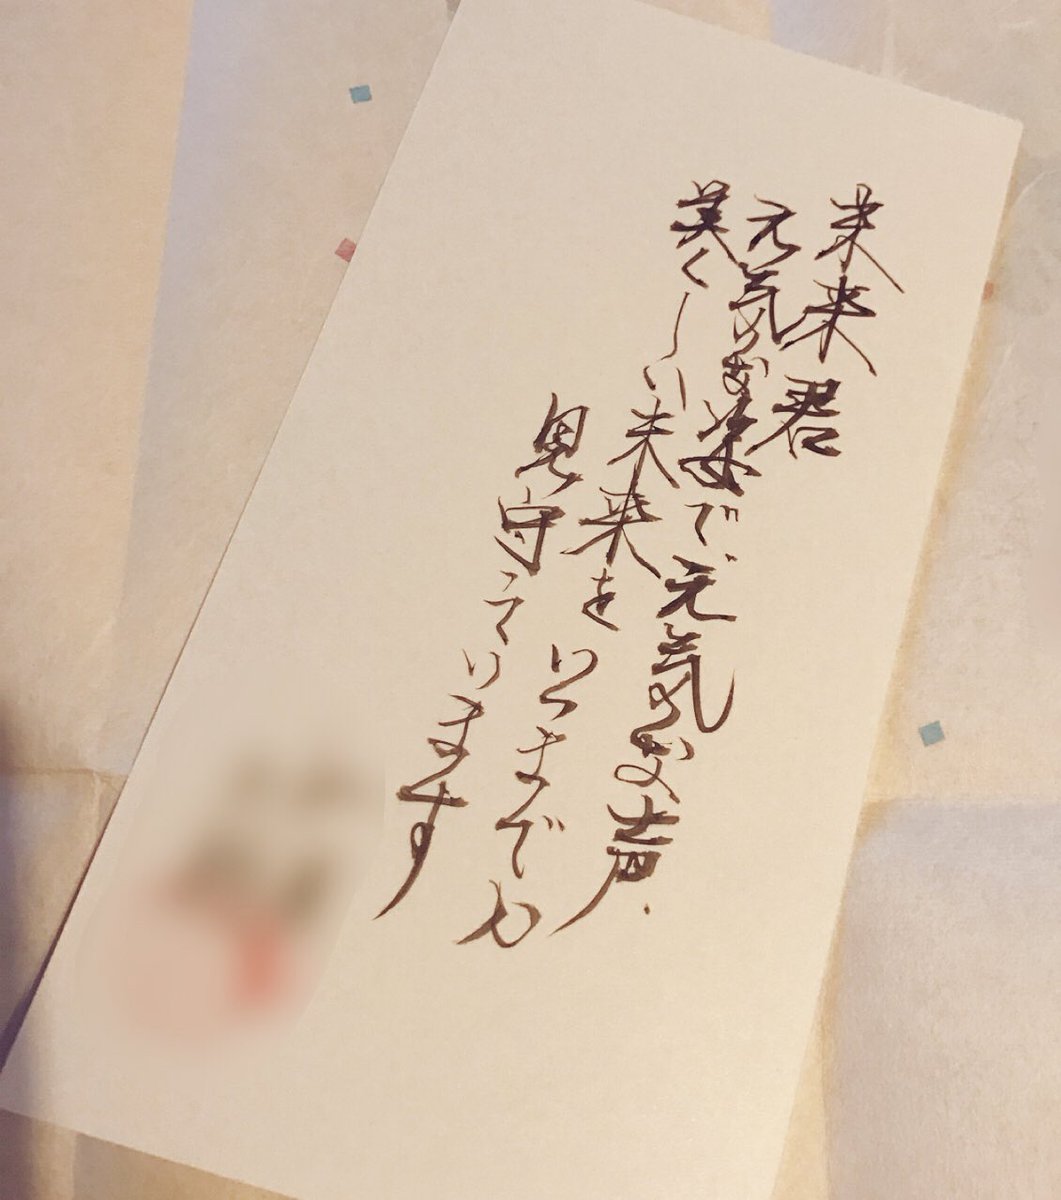 未来君
元気のお姿で元気のお声.
美くしい未来をいつまでも
見守っています